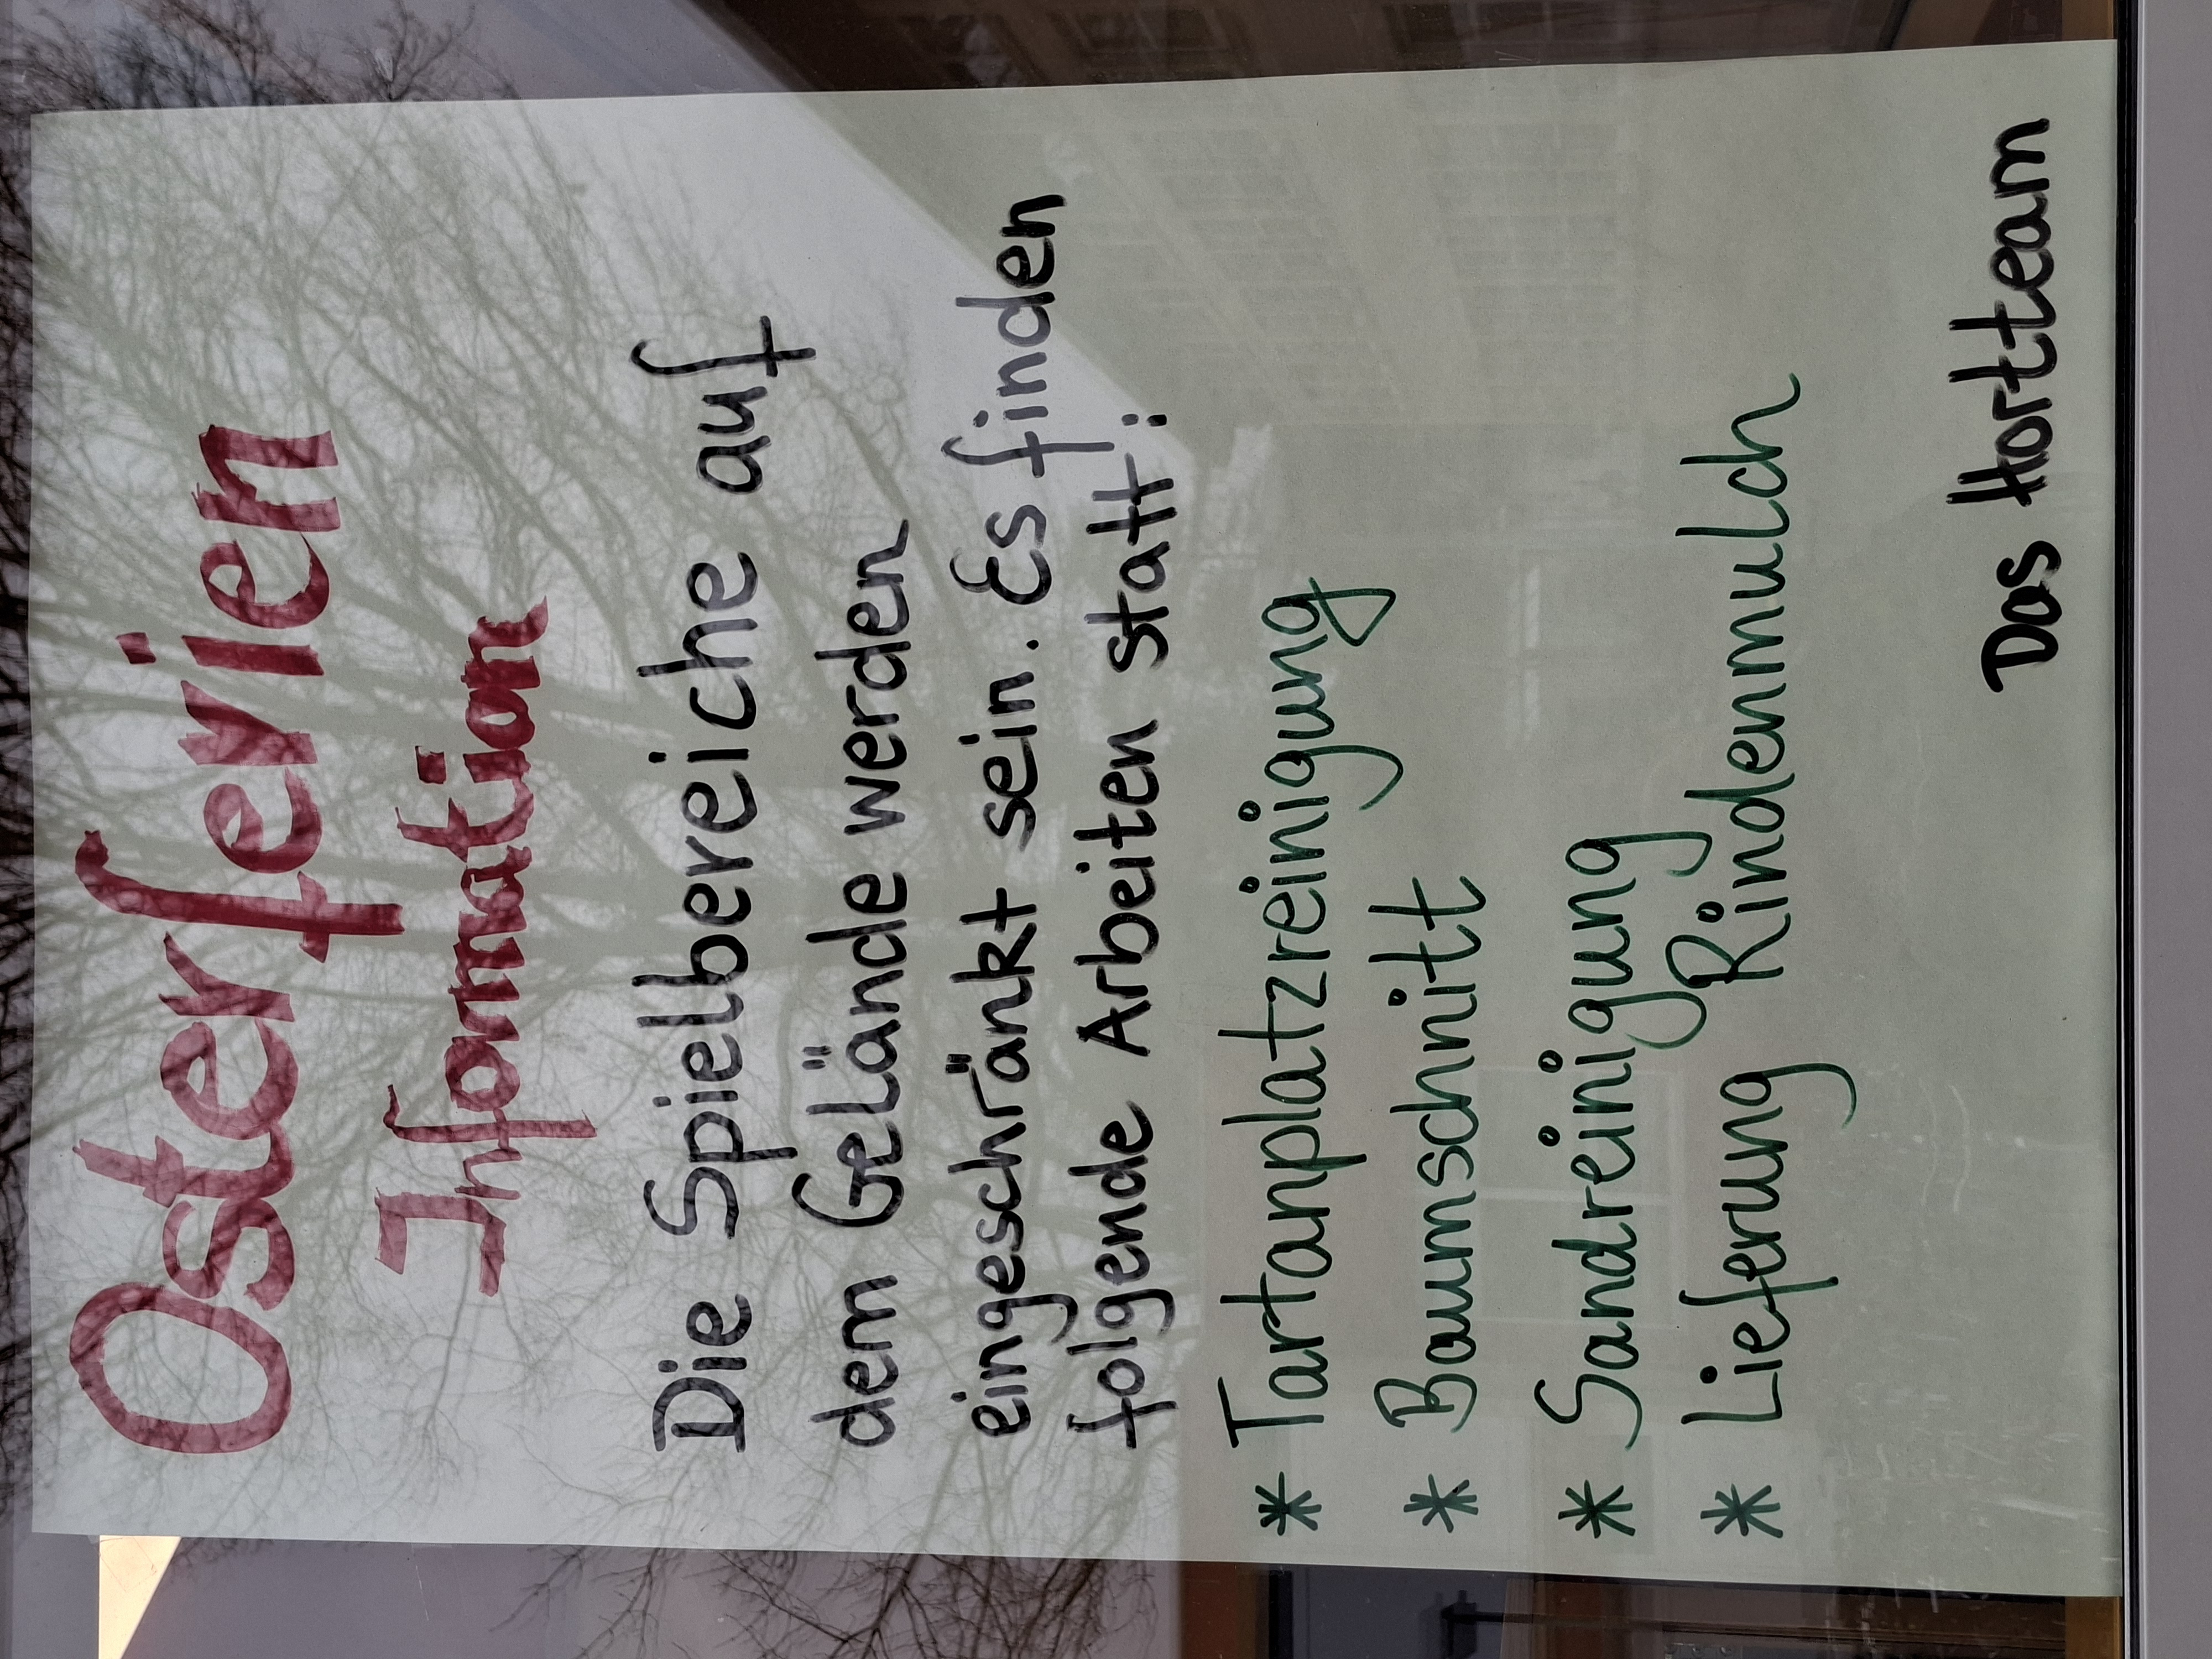 Osterferien
Information
Die Spielbereiche auf
dem Gelände werden
eingeschränkt sein. Es finden
folgende Arbeiten statt:
* Tartanplatzreinigung
* Baumschnitt
* Sandreinigung
* Lieferung Rindenmulch
Das Hortteam